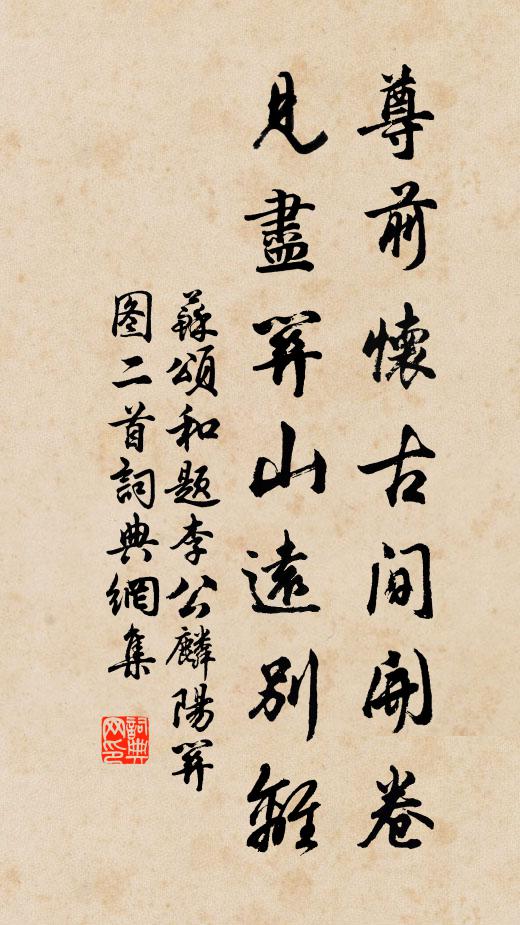 尊前懷古間開卷
見盡關山遠別離
蘇頌和題李公麟陽關
图二首詞典網集
詞典網印